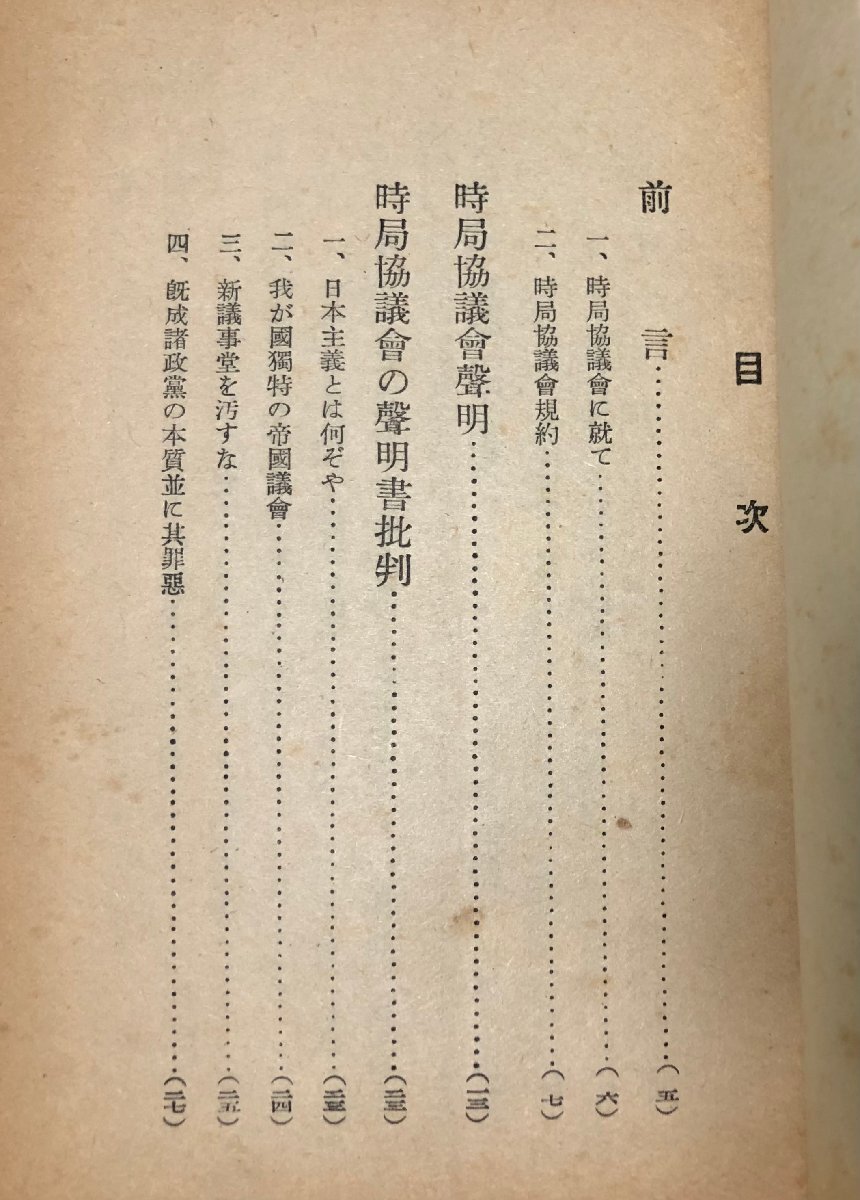 目次
前言……(五)
一、時局協議會に就て……(六)
二、時局協議會規約……(七)
時局協議會聲明……(一三)
時局協議會の聲明書批判……(二三)
一、日本主義とは何ぞや……(二三)
二、我が國獨特の帝國議會……(二四)
三、新議事堂を汚すな……(二五)
四、既成諸政黨の本質並に其罪惡……(二七)